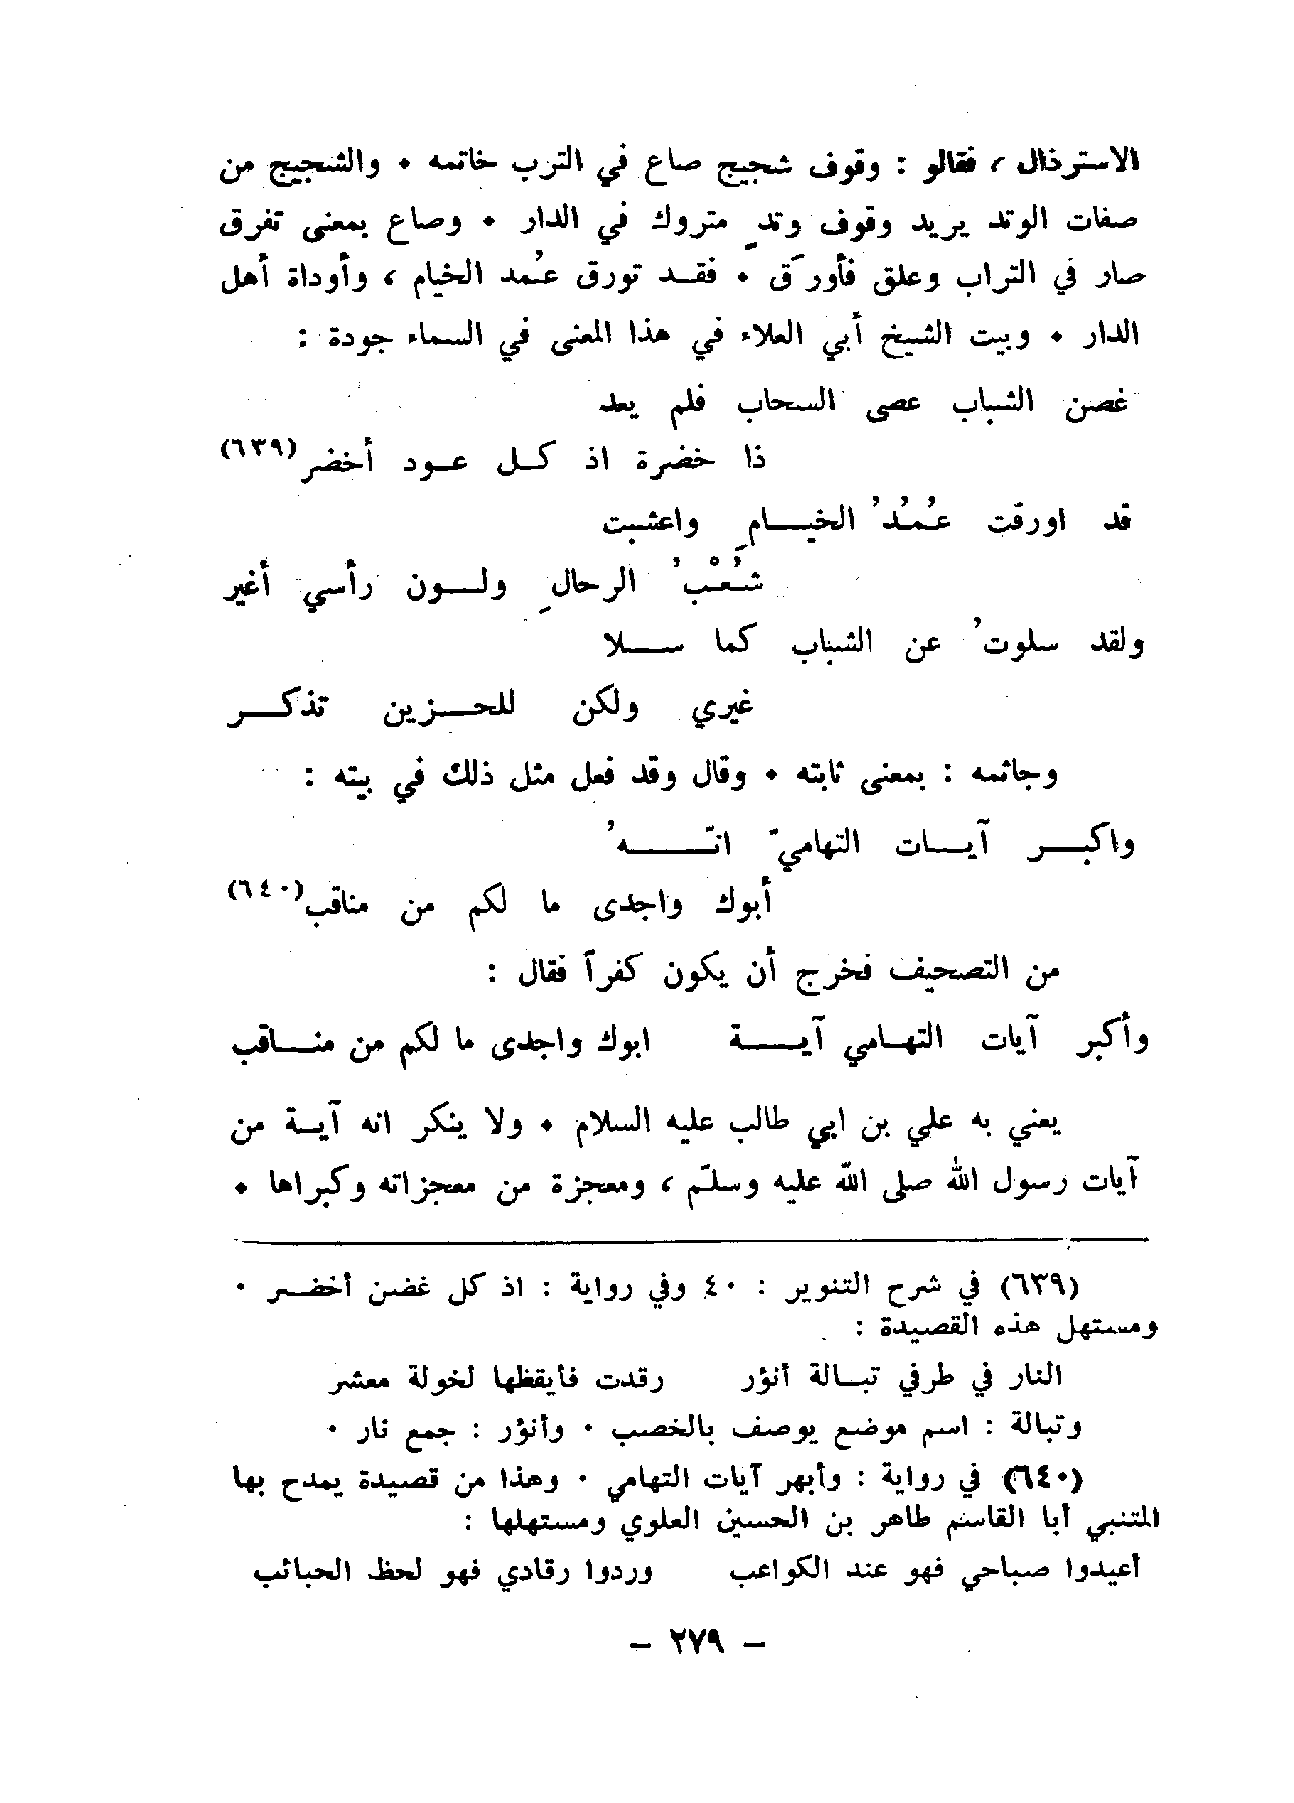 الاسترذال ، فقالو : وقوف شجيج صاع في الترب خاتمه ٠ والشجيج من
صفات الوتد يريد وقوف وتدٍ متروك في الدار ٠ وصاع بمعنى تفرق
صار في التراب وعلق فأورَق ٠ فقد تورق عُمد الخيام ، وأوداة أهل
الدار ٠ وبيت الشيخ أبي العلاء في هذا المعنى في السماء جودة :
غصن الشباب عصى السحاب فلم يعد
ذا خضرة اذ كل عود أخضر(٦٣٩)
قد اورقت عُمُدُ الخيامِ واعشبت
شُعْبُ الرحالِ ولون رأسي أغبر
ولقد سلوتُ عن الشباب كما سلا
غيري ولكن للحزين تذكر
وجاثمه : بمعنى ثابته ٠ وقال وقد فعل مثل ذلك في بيته :
واكبر آيات التهاميّ انّهُ
أبوك واجدى ما لكم من مناقب(٦٤٠)
من التصحيف فخرج أن يكون كفراً فقال :
وأكبر آيات التهامي آية ابوك واجدى ما لكم من مناقب
يعني به علي بن ابي طالب عليه السلام ٠ ولا ينكر انه آية من
آيات رسول الله صلى الله عليه وسلّم ، ومعجزة من معجزاته وكبراها ٠
(٦٣٩) في شرح التنوير : ٤٠ وفي رواية : اذ كل غضن أخضر ٠
ومستهل هذه القصيدة :
النار في طرفي تبالة أنؤر رقدت فأيقظها لخولة معشر
وتبالة : اسم موضع يوصف بالخصب ٠ وأنؤر : جمع نار ٠
(٦٤٠) في رواية : وأبهر آيات التهامي ٠ وهذا من قصيدة يمدح بها
المتنبي أبا القاسم طاهر بن الحسين العلوي ومستهلها :
أعيدوا صباحي فهو عند الكواعب وردوا رقادي فهو لحظ الحبائب
– ٢٧٩ –